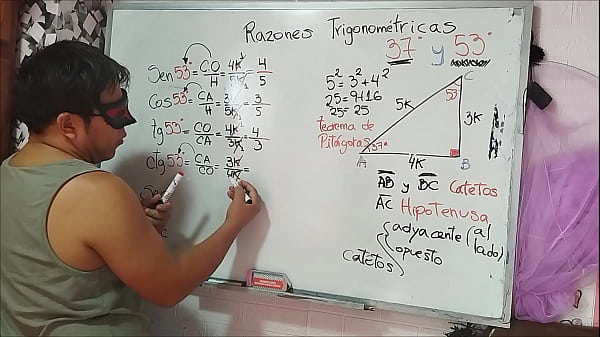 Razones Trigonométricas
37° y 53°
Sen 53° = CO/H = 4K/5K = 4/5
Cos 53° = CA/H = 3K/5K = 3/5
tg 53° = CO/CA = 4K/3K = 4/3
ctg 53° = CA/CO = 3K/4K =
5² = 3² + 4²
25 = 9+16
25 = 25
teorema de
Pitágoras
C
53
5K
3K
A
37°
4K
B
AB y BC Catetos
AC Hipotenusa
catetos
adyacente (al lado)
opuesto